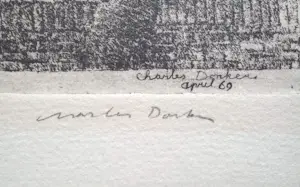 Charles Dorkens
april 69
Charles Dorken